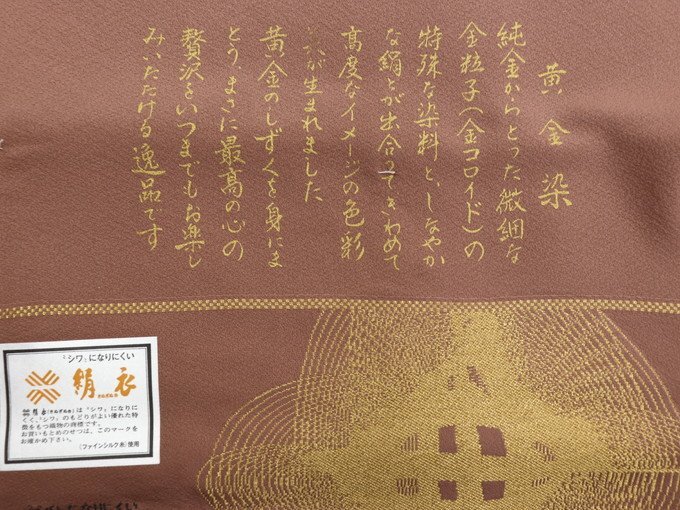 黄金染
純金からとった微細な
金粒子(金コロイド)の
特殊な染料と、しなやか
な絹とが出合ってきわめて
高度なイメージの色彩
が生まれました
黄金のしずくを身にま
とう、まさに最高の心の
贅沢をいつまでもお楽し
みいただける逸品です
“シワ”になりにくい
絹衣
きぬぎぬ®
絹衣(きぬぎぬ®)は“シワ”になりに
くく、“シワ”のもどりがよい優れた特
徴をもつ織物の商標です。
お買いもとめのせつは、このマークを
お確かめ下さい。
(ファインシルク糸)使用